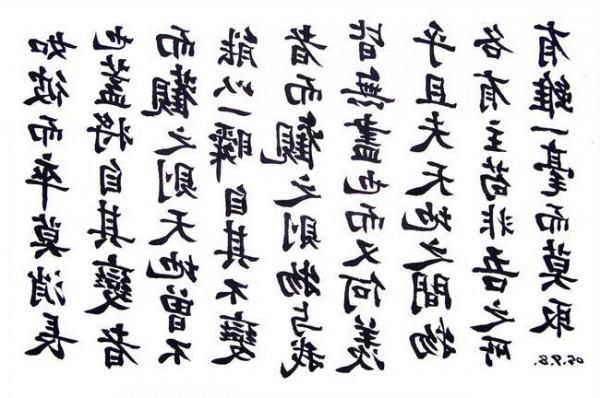 如彼而卒莫消長
也蓋將自其變者
而觀之則天地曾不
能以一瞬自其不變
者而觀之則物与我
皆無盡也而又何羨
乎且夫天地之間物
各有主苟非吾之所
有雖一毫而莫取
05.9.8.